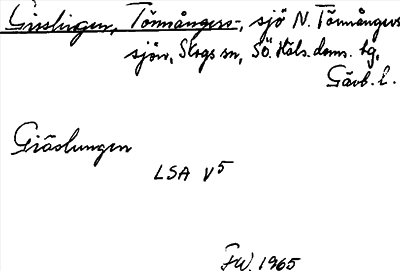 Gisslingen, Törnångers-, sjö N. Törnångers
sjön, Skogs sn, Sö. Häls. doms. tg,
Gävb. l.
Gräslungen
LSA V5
FW. 1965